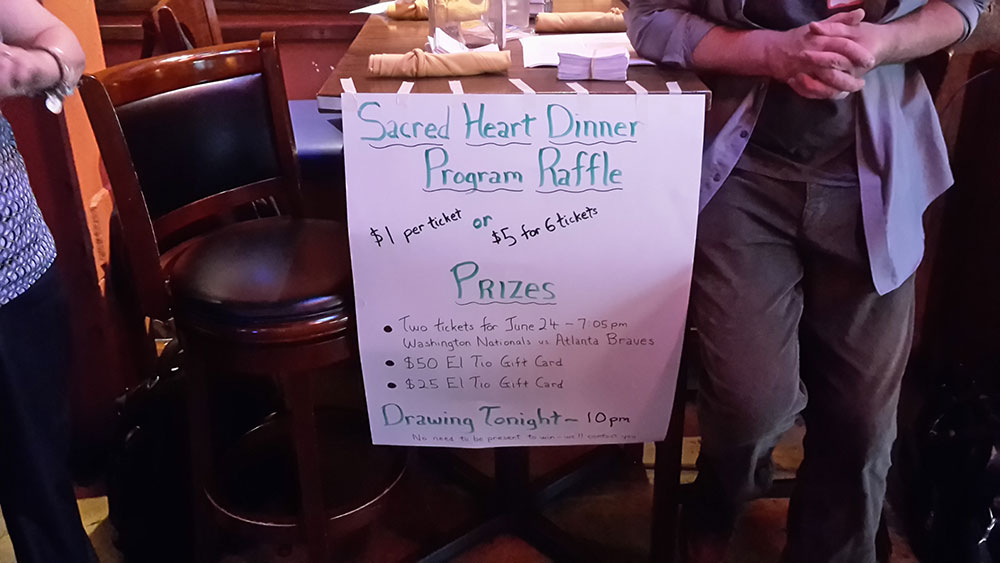 Sacred Heart Dinner
Program Raffle
$1 per ticket or $5 for 6 tickets
PRIZES
• Two tickets for June 24 - 7:05pm
Washington Nationals vs Atlanta Braves
• $50 El Tio Gift Card
• $25 El Tio Gift Card
Drawing Tonight - 10pm
No need to be present to win - we'll contact you